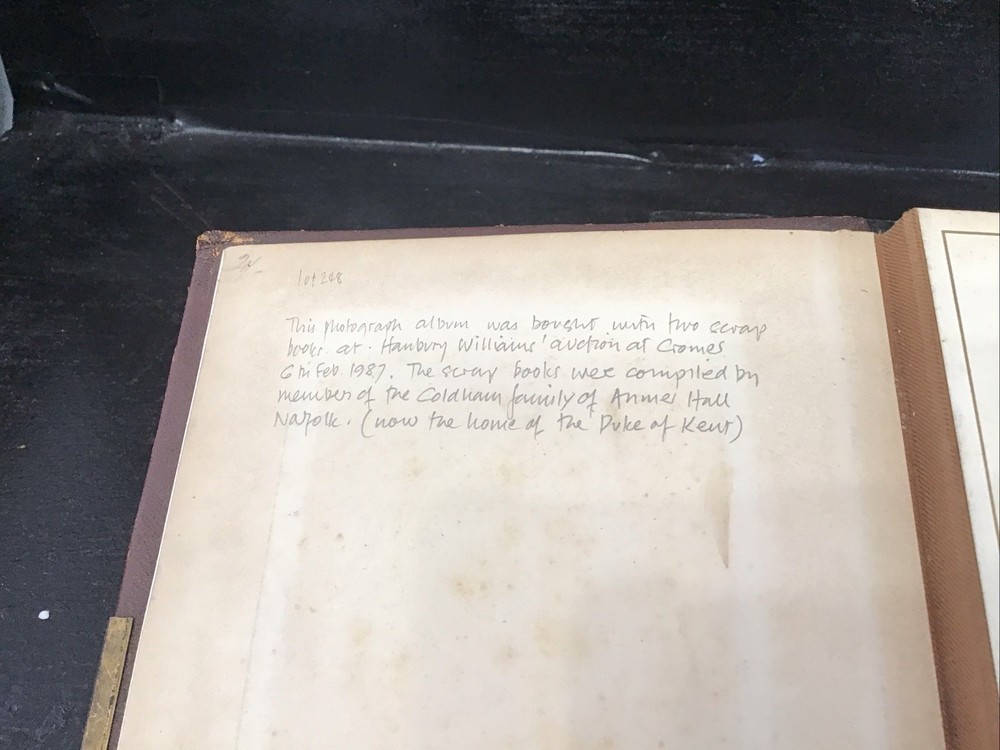 lot 248
This photograph album was bought with two scrap
books at Hanbury Williams' auction at Cromer
6th Feb 1987. The scrap books were compiled by
member of the Coldham family of Anmer Hall
Norfolk. (now the home of the Duke of Kent)